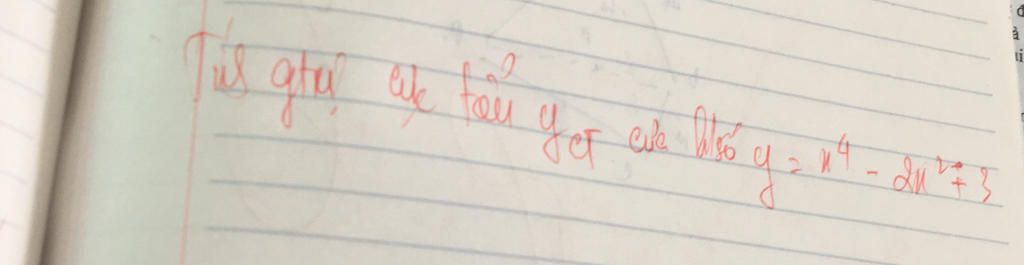 Tìm gtrị cực tiểu y_CT của h/số y = x⁴ - 2x² + 3